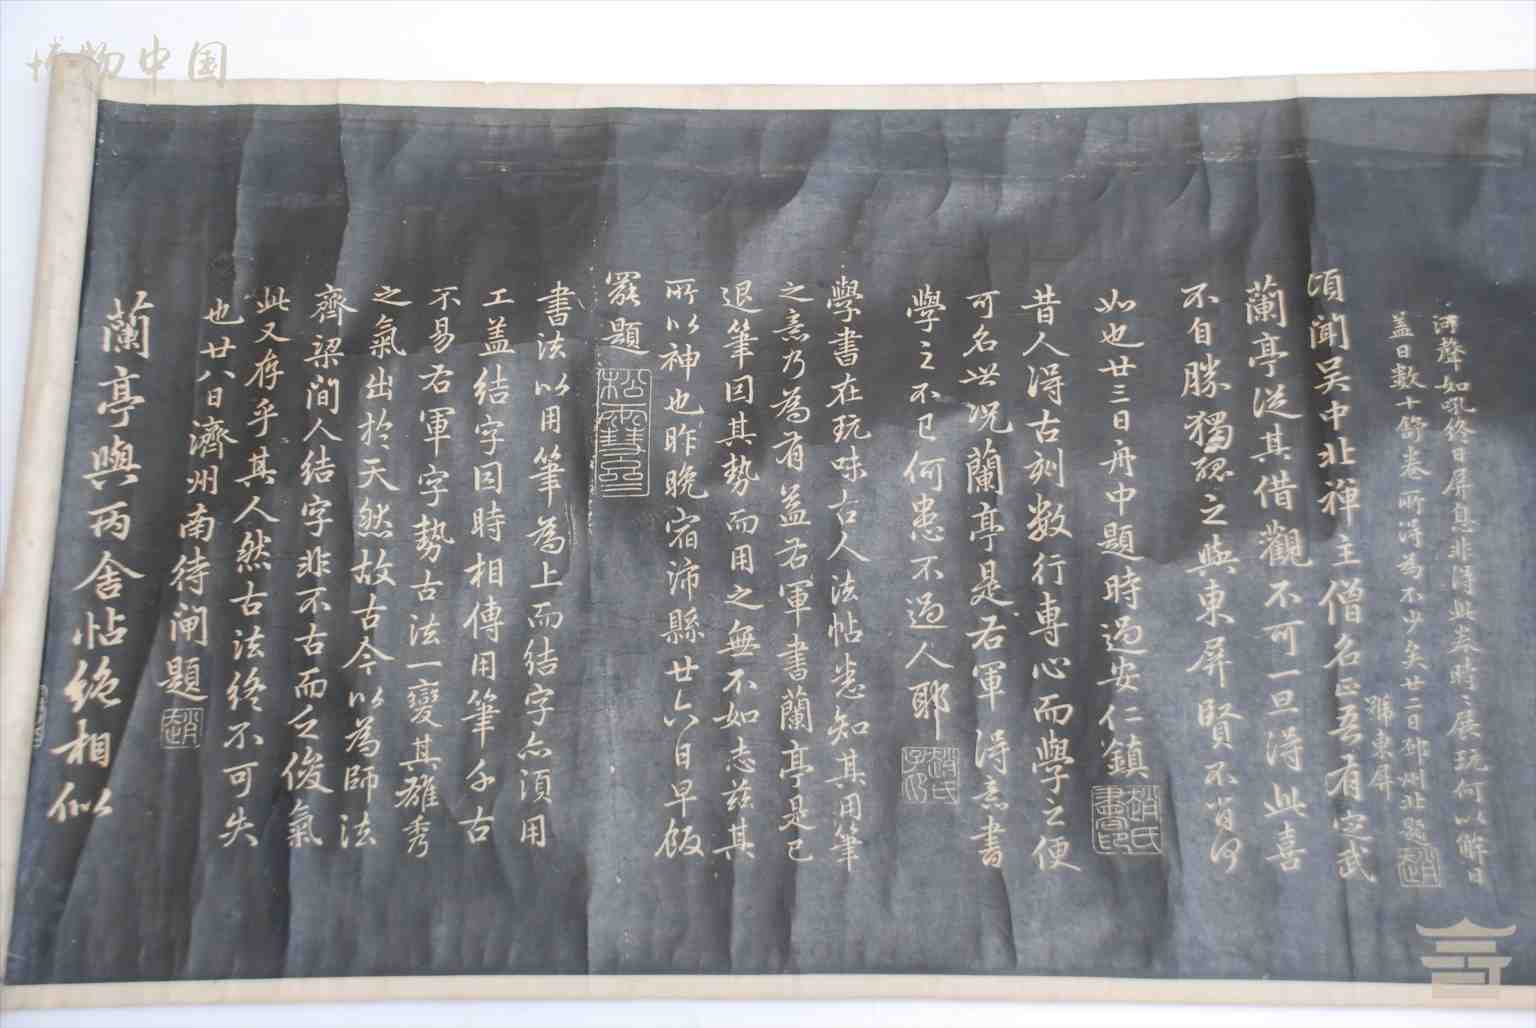 博物中国
河聲如吼終日屏息非得此卷時々展玩何以解日
蓋日數十舒卷所得為不少矣廿二日邳州北題
頃聞吳中北禪主僧名正吾有定武
號東屏
蘭亭從其借觀不可一旦得此喜
不自勝獨孤之與東屏賢不肖何
如也廿三日舟中題時過安仁鎮
趙氏書印
昔人得古刻數行專心而學之便
可名世況蘭亭是右軍得意書
學之不已何患不過人耶
趙氏子昂
學書在玩味古人法帖悉知其用筆
之意乃為有益右軍書蘭亭是已
退筆因其勢而用之無不如志茲其
所以神也昨晚宿沛縣廿六日早飯
罷題
松雪齋
書法以用筆為上而結字亦須用
工蓋結字因時相傳用筆千古
不易右軍字勢古法一變其雄秀
之氣出於天然故古今以為師法
齊梁間人結字非不古而乏俊氣
此又存乎其人然古法終不可失
也廿八日濟州南待閘題
趙
蘭亭與丙舍帖絕相似